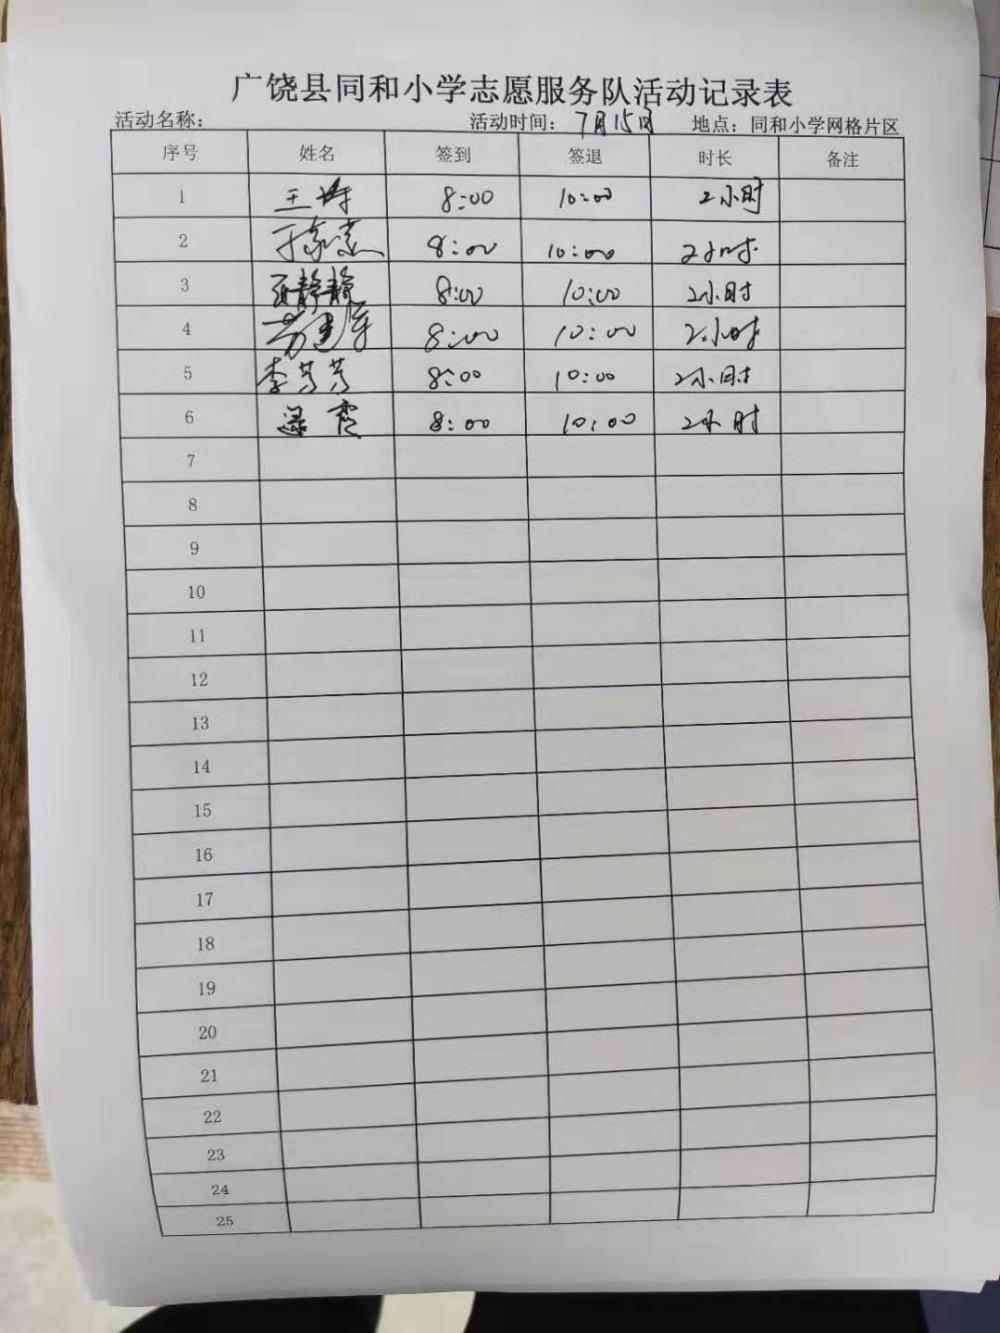 广饶县同和小学志愿服务队活动记录表
活动名称： 活动时间：7月15日 地点：同和小学网格片区
序号 姓名 签到 签退 时长 备注
1 王 8:00 10:00 2小时
2 于 8:00 10:00 2小时
3 张静静 8:00 10:00 2小时
4 8:00 10:00 2小时
5 李芳芳 8:00 10:00 2小时
6 霞 8:00 10:00 2小时
7
8
9
10
11
12
13
14
15
16
17
18
19
20
21
22
23
24
25